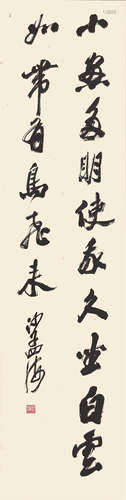 小窗多明使我久坐白雲
如帶有鳥飛來
沙孟海